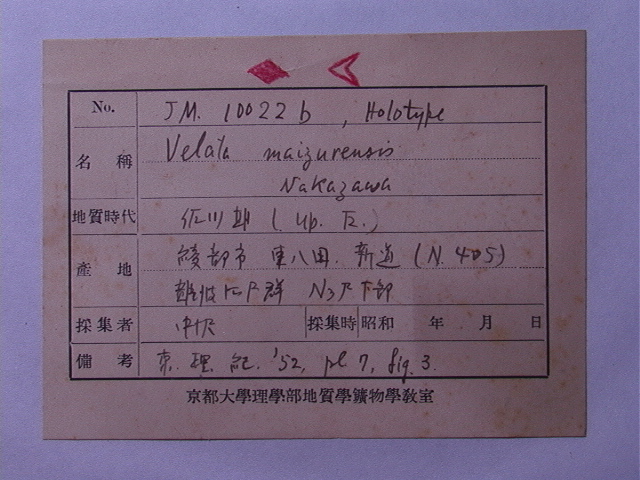 No. JM. 10022 b , Holotype
名稱 Velata maizurensis
Nakazawa
地質時代 佐川期 ( Up. T. )
產地 綾部市 東八田. 新道 ( N. 405 )
難波江層群 N3层下部
採集者 中沢 採集時 昭和 年 月 日
備考 京. 理. 紀. '52, pl 7, fig. 3.
京都大學理學部地質學鑛物學敎室